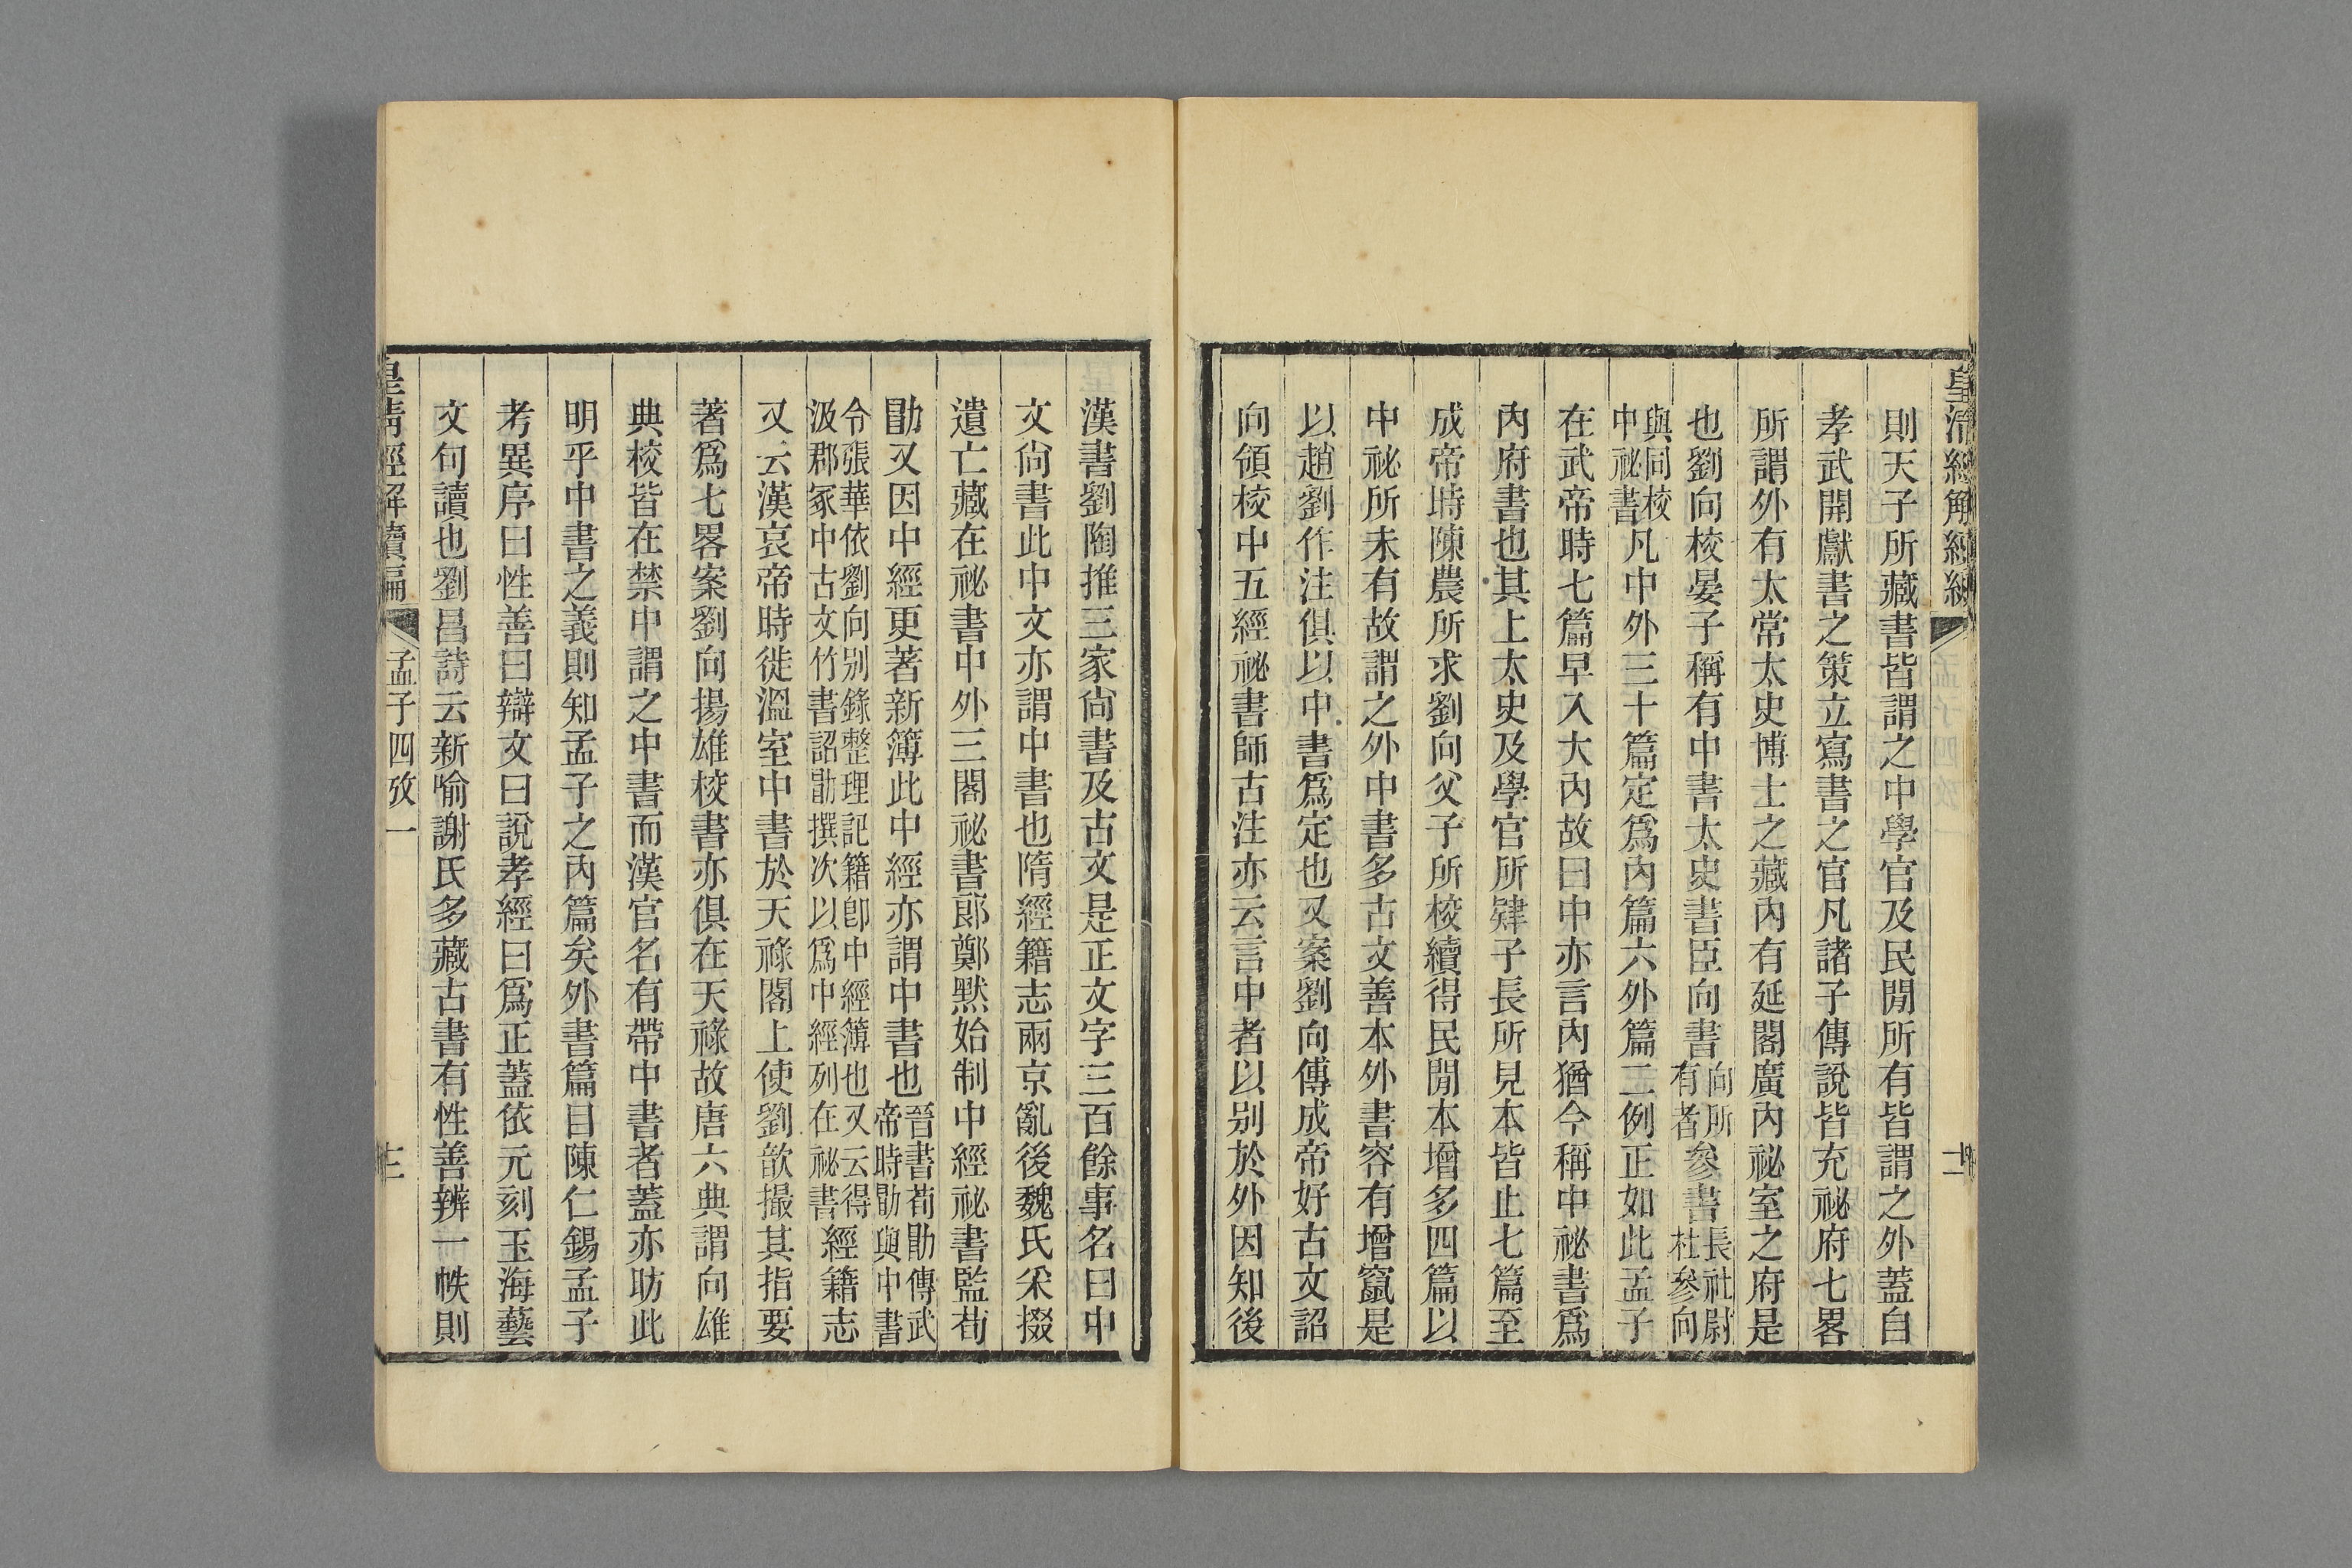 則天子所藏書皆謂之中學官及民閒所有皆謂之外蓋自
孝武開獻書之策立寫書之官凡諸子傳說皆充祕府七畧
所謂外有太常太史博士之藏內有延閣廣內祕室之府是
也劉向校晏子稱有中書太史書臣向書向所有者參書長社尉杜參向
與同校中祕書凡中外三十篇定爲內篇六外篇二例正如此孟子
在武帝時七篇早入大內故曰中亦言內猶今稱中祕書爲
內府書也其上太史及學官所肄子長所見本皆止七篇至
成帝時陳農所求劉向父子所校續得民閒本增多四篇以
中祕所未有故謂之外中書多古文善本外書容有增竄是
以趙劉作注俱以中書爲定也又案劉向傳成帝好古文詔
向領校中五經祕書師古注亦云言中者以别於外因知後
漢書劉陶推三家尙書及古文是正文字三百餘事名曰中
文尙書此中文亦謂中書也隋經籍志兩京亂後魏氏采掇
遺亡藏在祕書中外三閣祕書郎鄭默始制中經祕書監荀
勖又因中經更著新簿此中經亦謂中書也晉書荀勖傳武帝時勖與中書
令張華依劉向别錄整理記籍卽中經簿也又云得汲郡冢中古文竹書詔勖撰次以爲中經列在祕書經籍志
又云漢哀帝時徙溫室中書於天祿閣上使劉歆撮其指要
著爲七畧案劉向揚雄校書亦俱在天祿故唐六典謂向雄
典校皆在禁中謂之中書而漢官名有帶中書者蓋亦昉此
明乎中書之義則知孟子之內篇矣外書篇目陳仁錫孟子
考異序曰性善曰辯文曰說孝經曰爲正蓋依元刻玉海藝
文句讀也劉昌詩云新喻謝氏多藏古書有性善辨一帙則
皇淸經解續編
孟子四攷一